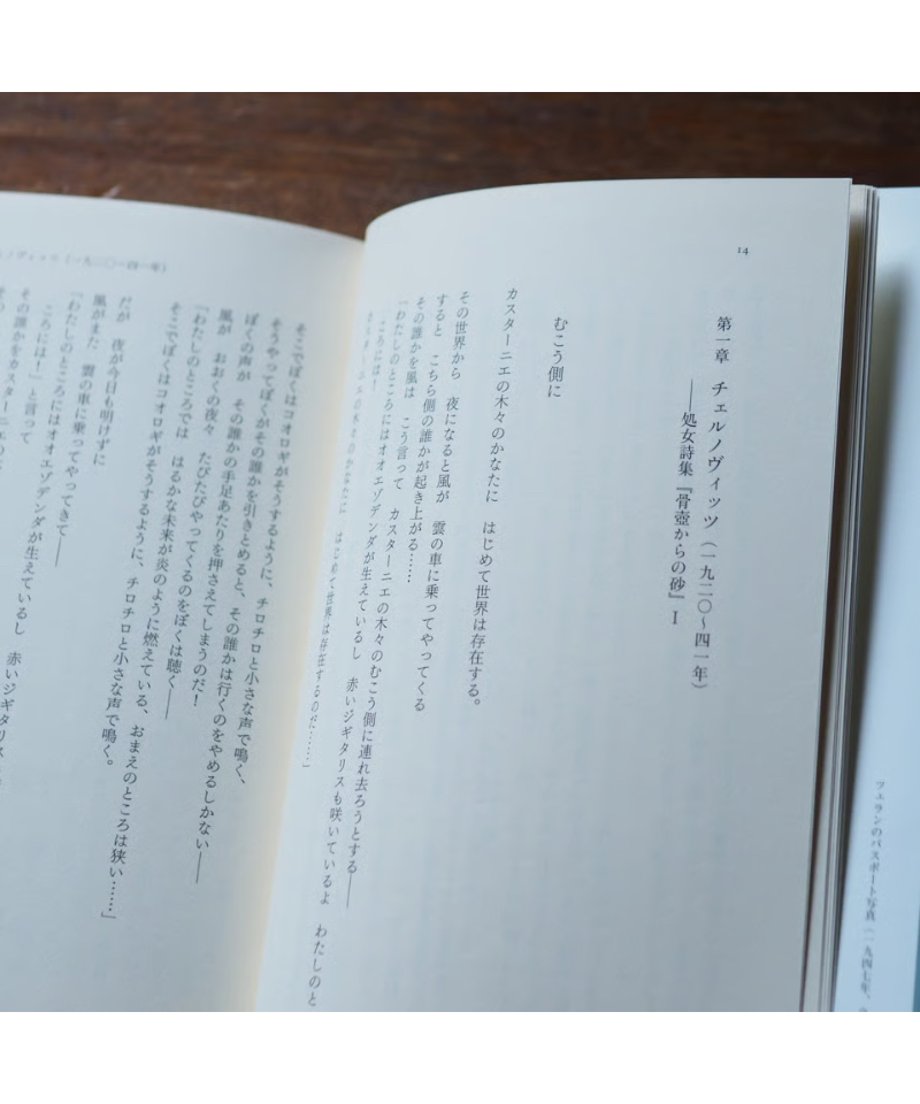 14
第一章 チェルノヴィッツ(一九二〇〜四一年)
――処女詩集『骨壺からの砂』Ⅰ
むこう側に
カスターニエの木々のかなたに はじめて世界は存在する。
その世界から 夜になると風が 雲の車に乗ってやってくる
すると こちら側の誰かが起き上がる……
その誰かを風は こう言って カスターニエの木々のむこう側に連れ去ろうとする――
「わたしのところにはオオエゾデンダが生えているし 赤いジギタリスも咲いているよ わたしのと
ころには!
カスターニエの木々のかなたに はじめて世界は存在するのだ……」
そこでぼくはコオロギがそうするように、チロチロと小さな声で鳴く、
そうやってぼくがその誰かを引きとめると、その誰かは行くのをやめるしかない――
ぼくの声が その誰かの手足あたりを押さえてしまうのだ!
風が おおくの夜々 たびたびやってくるのをぼくは聴く――
「わたしのところでは はるかな未来が炎のように燃えている、おまえのところは狭い……」
そこでぼくはコオロギがそうするように、チロチロと小さな声で鳴く。
だが 夜が今日も明けずに
風がまた 雲の車に乗ってやってきて――
「わたしのところにはオオエゾデンダが生えているし 赤いジギタリス
ころには!」と言って
その誰かをカスターニエの
ノヴィッツ(一九二〇〜四一年)
ツェランのパスポート写真(一九四七年、